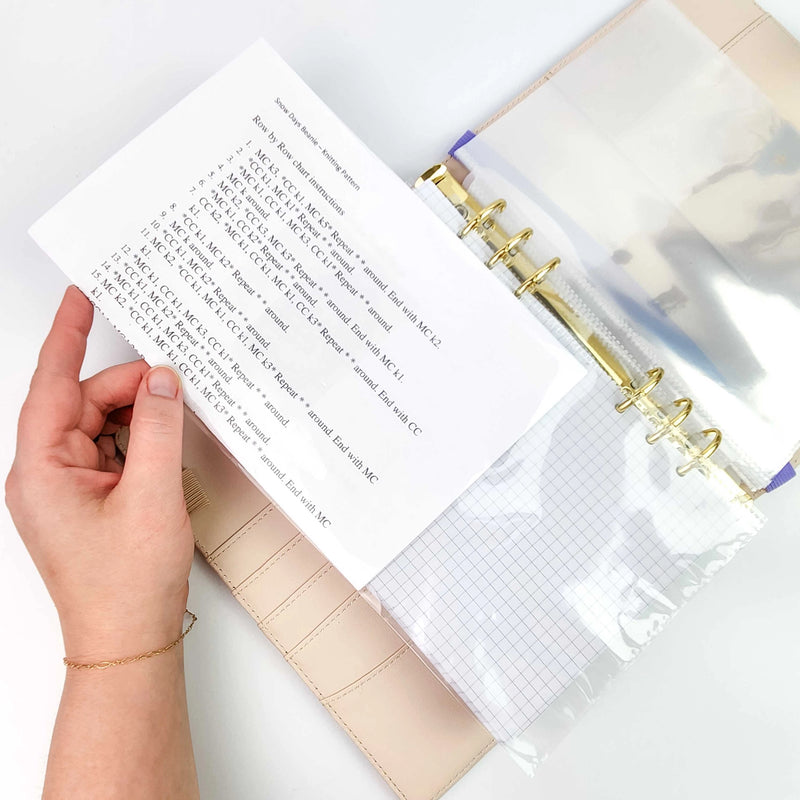 Snow Days Beanie – Knitting Pattern
Row by Row chart instructions
1. MC k3, *CC k1, MC k5* Repeat * * around. End with MC k2.
2. *CC k1, MC k1* Repeat * * around.
3. *MC k1, CC k1, MC k3, CC k1* Repeat * * around.
4. MC k around.
5. MC k2, *CC k3, MC k3* Repeat * * around. End with MC k1.
6. *MC k1, CC k2* Repeat * * around.
7. CC k2, *MC k1, CC k1, MC k1, CC k3* Repeat * * around. End with CC
k1.
8. *CC k1, MC k2* Repeat * * around.
9. MC k around.
10. *CC k1, MC k2* Repeat * * around.
11. MC k2, *CC k1, MC k1, CC k1, MC k3* Repeat * * around. End with MC
k1.
12. *MC k1, CC k1, MC k3, CC k1* Repeat * * around.
13. *CC k1, MC k2* Repeat * * around.
14. *MC k1, CC k1, MC k3, CC k1* Repeat * * around.
15. MC k2, *CC k1, MC k1, CC k1, MC k3* Repeat * * around. End with MC
k1.